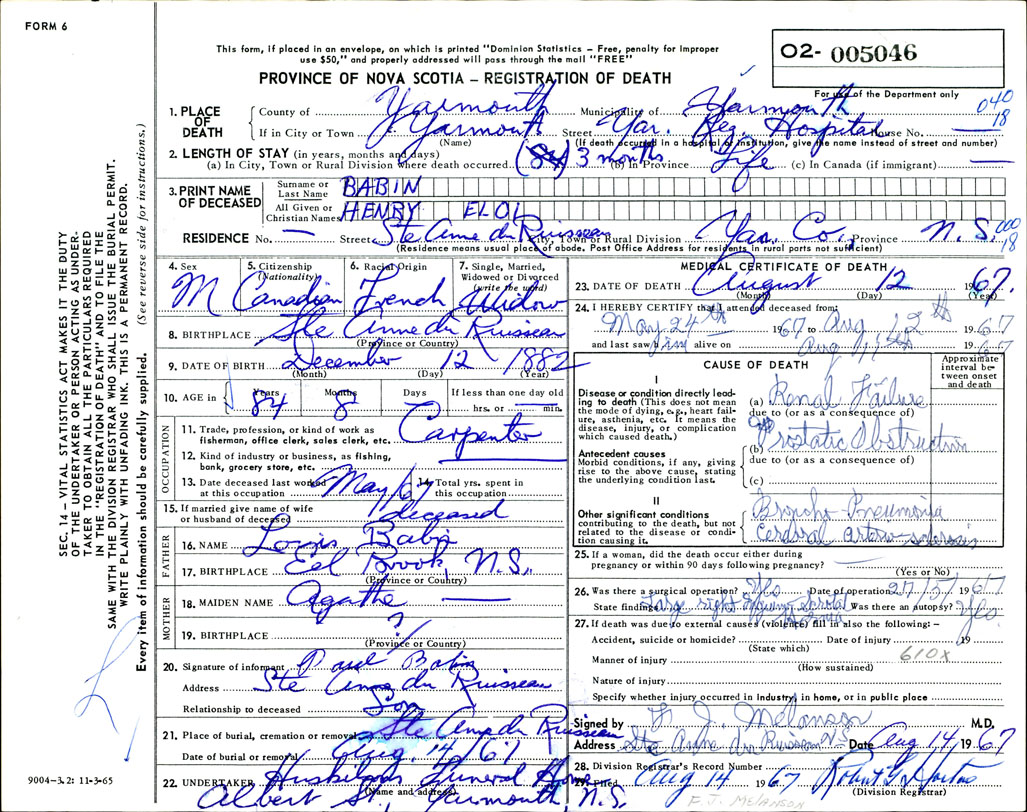 FORM 6
This form, if placed in an envelope, on which is printed "Dominion Statistics – Free, penalty for improper
use $50," and properly addressed will pass through the mail "FREE"
O2- 005046
PROVINCE OF NOVA SCOTIA – REGISTRATION OF DEATH
For use of the Department only
040
18
1. PLACE OF DEATH
County of Yarmouth Municipality of Yarmouth
If in City or Town Yarmouth Street Yar. Reg. Hospital House No. —
(Name) (If death occurred in a hospital or institution, give the name instead of street and number)
2. LENGTH OF STAY (in years, months and days)
(a) In City, Town or Rural Division where death occurred (84) 3 months (b) In Province Life (c) In Canada (if immigrant) —
3. PRINT NAME OF DECEASED
Surname or Last Name BABIN
All Given or Christian Names HENRY ELOI
RESIDENCE No. — Street Ste Anne du Ruisseau City, Town or Rural Division Yar. Co., Province N.S.
000
18
(Residence means usual place of abode. Post Office Address for residents in rural ports not sufficient)
4. Sex M
5. Citizenship (Nationality) Canadian
6. Racial Origin French
7. Single, Married, Widowed or Divorced (write the word) Widow
8. BIRTHPLACE Ste Anne du Ruisseau
(Province or Country)
9. DATE OF BIRTH December 12 1882
(Month) (Day) (Year)
10. AGE in Years 84 Months 8 Days If less than one day old hrs. or min.
OCCUPATION
11. Trade, profession, or kind of work as fisherman, office clerk, sales clerk, etc. Carpenter
12. Kind of industry or business, as fishing, bank, grocery store, etc.
13. Date deceased last worked at this occupation May/67
14. Total yrs. spent in this occupation
15. If married give name of wife or husband of deceased deceased
FATHER
16. NAME Louis Babin
17. BIRTHPLACE Eel Brook, N.S.
(Province or Country)
MOTHER
18. MAIDEN NAME Agathe —
19. BIRTHPLACE ?
(Province or Country)
20. Signature of informant Paul Babin
Address Ste Anne du Ruisseau
Relationship to deceased Son
21. Place of burial, cremation or removal Ste Anne du Ruisseau
Date of burial or removal Aug. 14/67
22. UNDERTAKER Huskilsons Funeral Home
(Name and address)
Albert St., Yarmouth, N.S.
MEDICAL CERTIFICATE OF DEATH
23. DATE OF DEATH August 12 1967.
(Month) (Day) (Year)
24. I HEREBY CERTIFY that I attended deceased from:
May 24th 1967 to Aug 12th 1967
and last saw him alive on Aug 11th 1967
CAUSE OF DEATH
Approximate interval between onset and death
I
Disease or condition directly leading to death (This does not mean the mode of dying, e.g., heart failure, asthenia, etc. It means the disease, injury, or complication which caused death.)
(a) Renal Failure
due to (or as a consequence of)
Antecedent causes
Morbid conditions, if any, giving rise to the above cause, stating the underlying condition last.
(b) Prostatic Obstruction
due to (or as a consequence of)
(c)
II
Other significant conditions contributing to the death, but not related to the disease or condition causing it.
Broncho-Pneumonia
Cerebral arterio-sclerosis
25. If a woman, did the death occur either during
pregnancy or within 90 days following pregnancy?
(Yes or No)
26. Was there a surgical operation? Yes Date of operation 27/5/ 1967
State findings Large right Scrotal Was there an autopsy? Yes
27. If death was due to external causes (violence) fill in also the following: –
Accident, suicide or homicide? Date of injury 19
(State which)
610X
Manner of injury
(How sustained)
Nature of injury
Specify whether injury occurred in industry, in home, or in public place
Signed by F. J. Melanson M.D.
Address Ste Anne du Ruisseau NS Date Aug 14 1967
28. Division Registrar's Record Number
Filed Aug 14 1967
(Division Registrar)
F. J. MELANSON
SEC. 14 – VITAL STATISTICS ACT MAKES IT THE DUTY
OF THE UNDERTAKER OR PERSON ACTING AS UNDER-
TAKER TO OBTAIN ALL THE PARTICULARS REQUIRED
IN THE "REGISTRATION OF DEATH", AND TO FILE THE
SAME WITH THE DIVISION REGISTRAR WHO SHALL ISSUE THE BURIAL PERMIT.
WRITE PLAINLY WITH UNFADING INK. THIS IS A PERMANENT RECORD.
Every item of information should be carefully supplied. (See reverse side for instructions.)
9004-3.2: 11-3-65